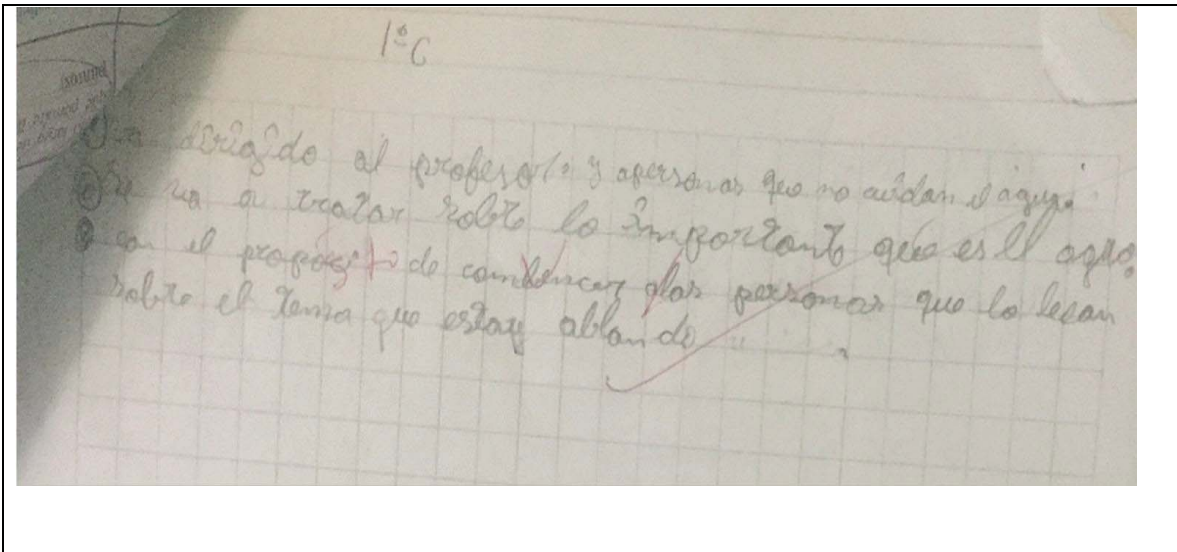 1°C
va dirigido al profesor/a y apersonas que no cuidan el agua.
Se va a tratar sobre lo importante que es el agua.
con el proposito de convencer alas personas que lo lean
sobre el tema que estay ablando